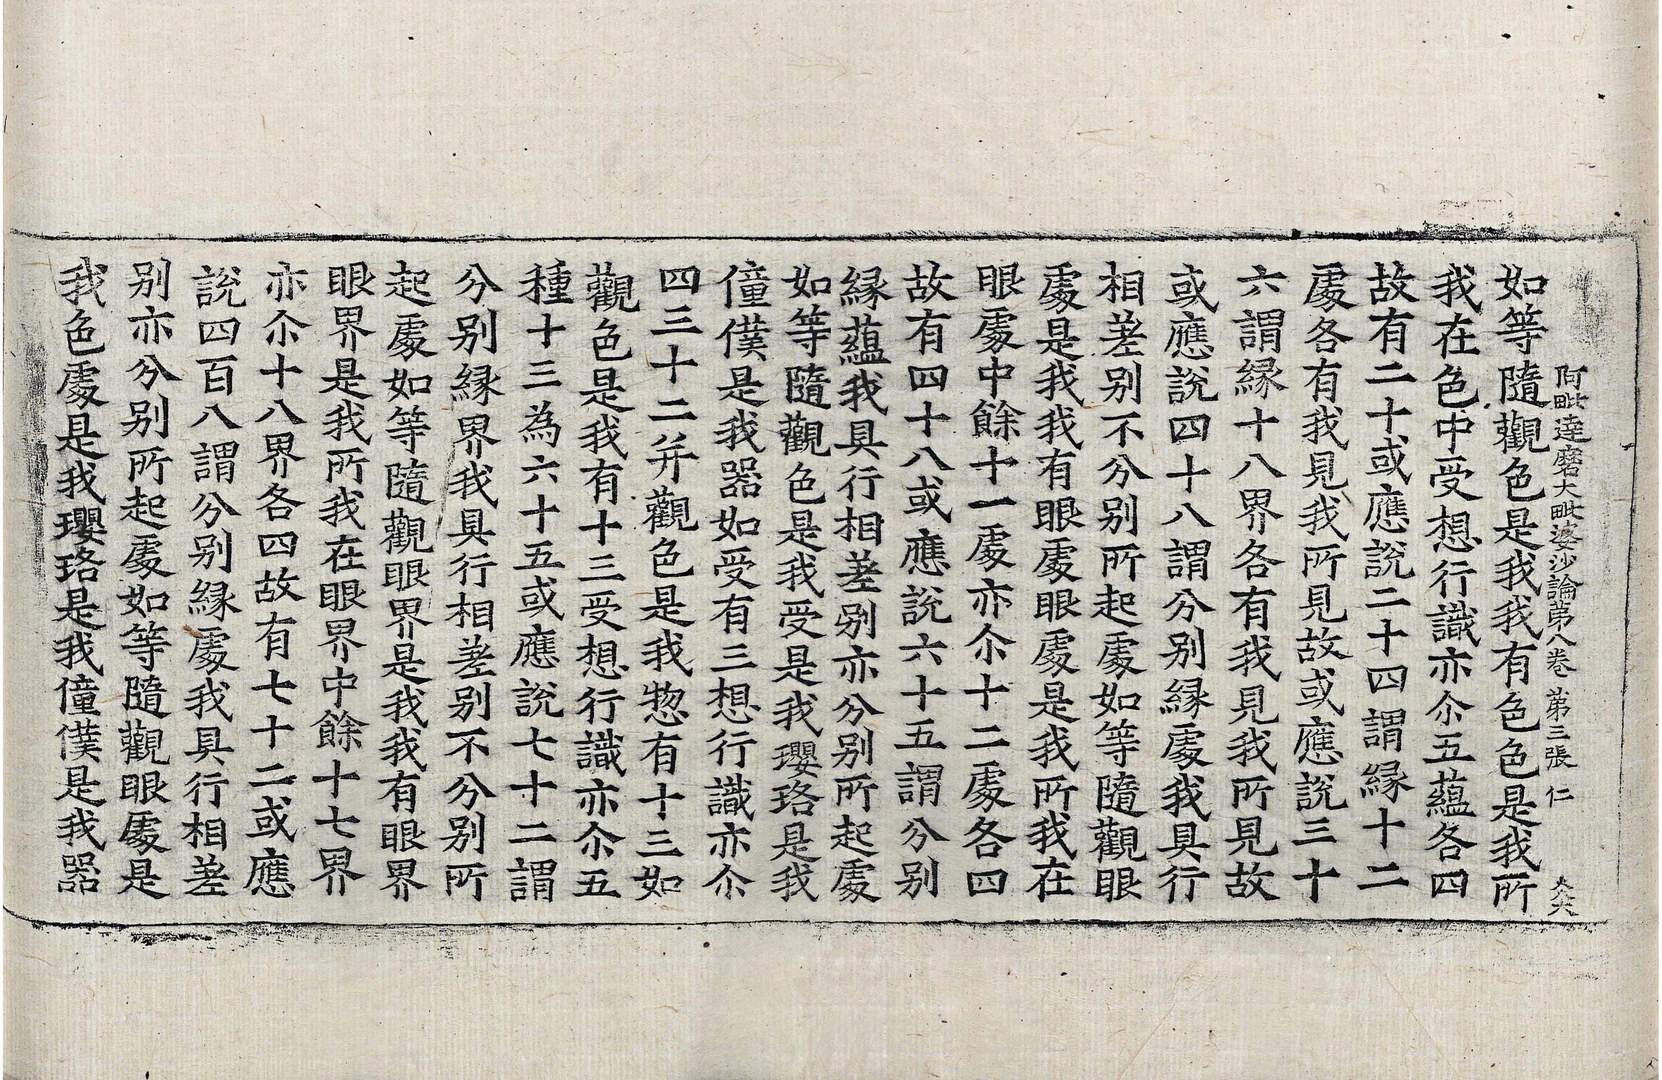 阿毗達磨大毗婆沙論第八卷 第三張 仁
如等隨觀色是我我有色色是我所
我在色中受想行識亦尒五蘊各四
故有二十或應說二十四謂緣十二
處各有我見我所見故或應說三十
六謂緣十八界各有我見我所見故
或應說四十八謂分別緣處我具行
相差別不分別所起處如等隨觀眼
處是我我有眼處眼處是我所我在
眼處中餘十一處亦尒十二處各四
故有四十八或應說六十五謂分別
緣蘊我具行相差別亦分別所起處
如等隨觀色是我受是我瓔珞是我
僮僕是我器如受有三想行識亦尒
四三十二并觀色是我惣有十三如
觀色是我有十三受想行識亦尒五
種十三為六十五或應說七十二謂
分別緣界我具行相差別不分別所
起處如等隨觀眼界是我我有眼界
眼界是我所我在眼界中餘十七界
亦尒十八界各四故有七十二或應
說四百八謂分別緣處我具行相差
別亦分別所起處如等隨觀眼處是
我色處是我瓔珞是我僮僕是我器